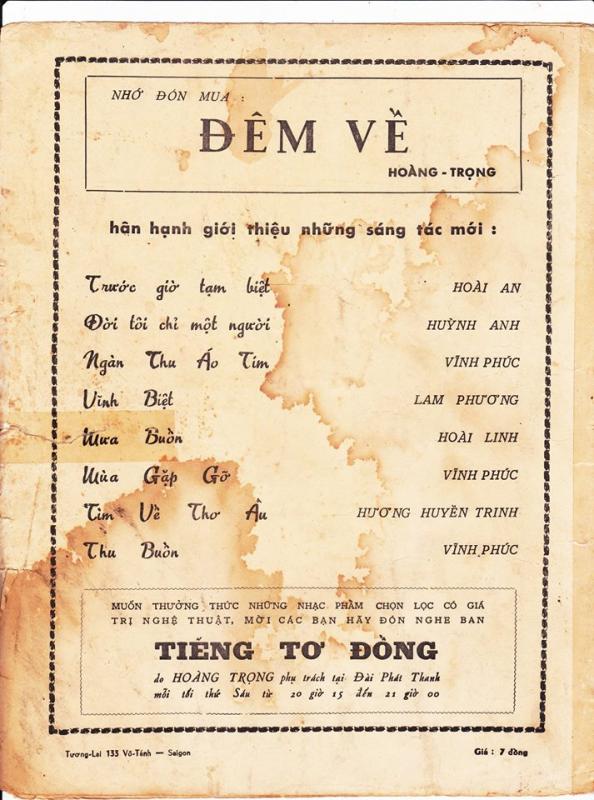 NHỚ ĐÓN MUA :
ĐÊM VỀ
HOÀNG - TRỌNG
hân hạnh giới thiệu những sáng tác mới :
Trước giờ tạm biệt HOÀI AN
Đời tôi chỉ một người HUỲNH ANH
Ngàn Thu Áo Tím VĨNH PHÚC
Vĩnh Biệt LAM PHƯƠNG
Mưa Buồn HOÀI LINH
Mùa Gặp Gỡ VĨNH PHÚC
Tìm Về Thơ Ấu HƯƠNG HUYỀN TRINH
Thu Buồn VĨNH PHÚC
MUỐN THƯỞNG THỨC NHỮNG NHẠC PHẨM CHỌN LỌC CÓ GIÁ
TRỊ NGHỆ THUẬT, MỜI CÁC BẠN HÃY ĐÓN NGHE BAN
TIẾNG TƠ ĐỒNG
do HOÀNG TRỌNG phụ trách tại Đài Phát Thanh
mỗi tối thứ Sáu từ 20 giờ 15 đến 21 giờ 00
Tương-Lai 133 Võ-Tánh — Saigon Giá : 7 đồng